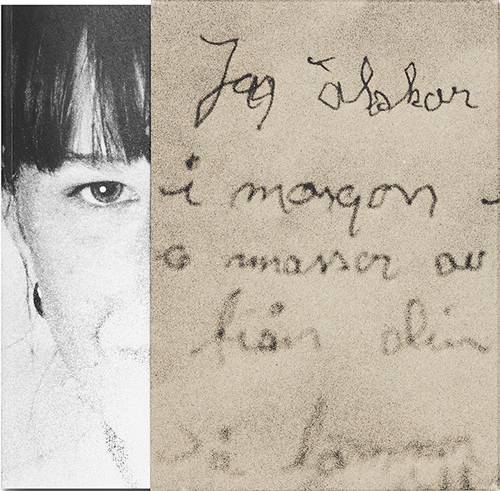 Jag älskar
i morgon
o massor av
från din